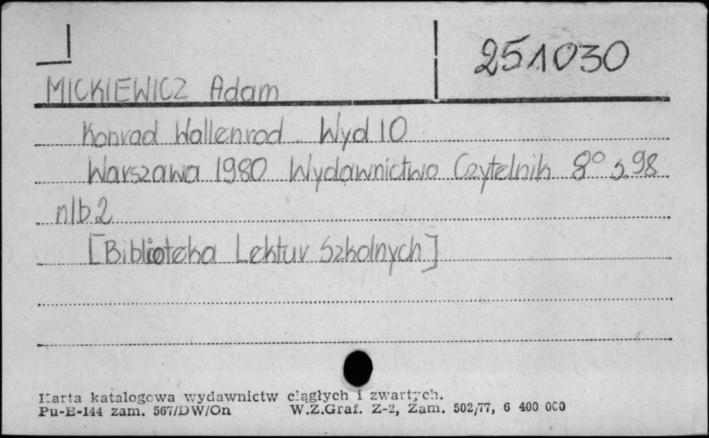 251030
MICKIEWICZ Adam
Konrad Wallenrod. Wyd 10
Warszawa 1980 Wydawnictwo Czytelnik 8° s.98
nlb.2
[Biblioteka Lektur Szkolnych]
Karta katalogowa wydawnictw ciągłych i zwartych.
Pu-B-144 zam. 567/DW/On W.Z.Graf. Z-2, Zam. 502/77, 6 400 000